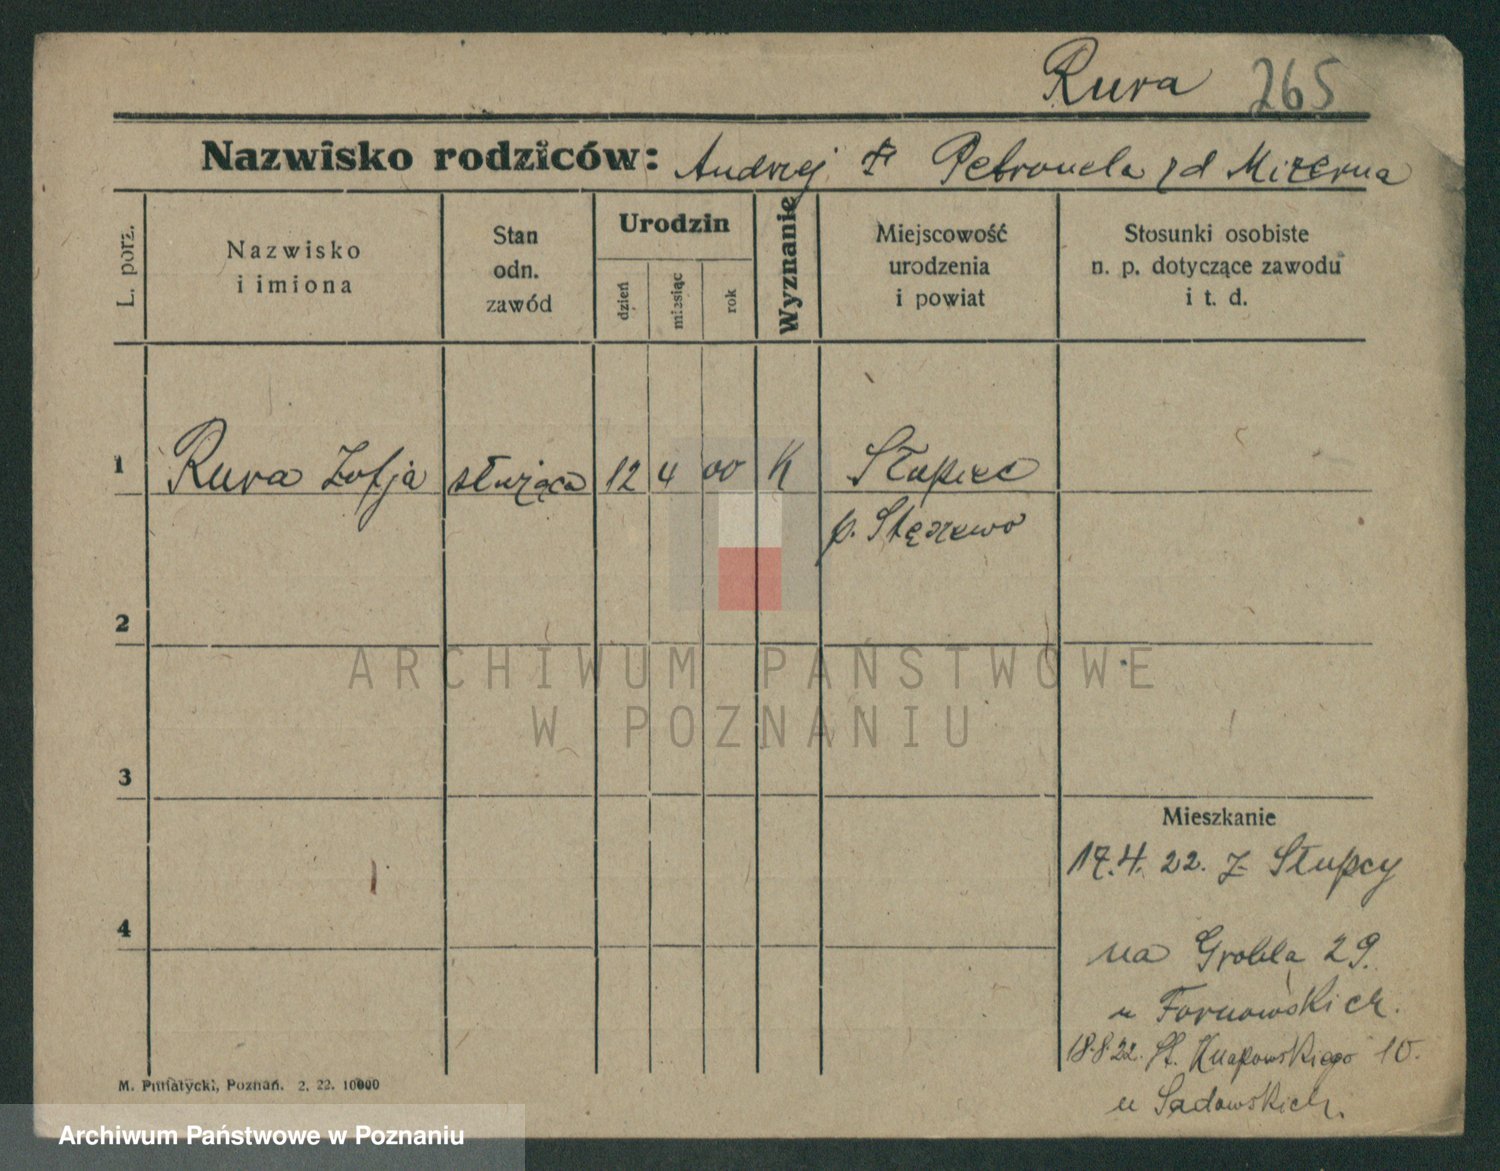 Rura 265
Nazwisko rodziców: Andrzej Petronela zd Mizerna
L. porz.
Nazwisko
i imiona
Stan
odn.
zawód
Urodzin
dzień
miesiąc
rok
Wyznanie
Miejscowość
urodzenia
i powiat
Stosunki osobiste
n. p. dotyczące zawodu
i t. d.
1 Rura Zofja służąca 12 4 00 K Słupiec
p. Stęszewo
2
ARCHIWUM PAŃSTWOWE
W POZNANIU
3
Mieszkanie
17.4.22. z Słupcy
4
na Grobla 29.
u Fornowskich.
18.8.22. St. Knapowskiego 10.
u Sadowskich.
Poznań. 2. 22. 10000
Archiwum Państwowe w Poznaniu